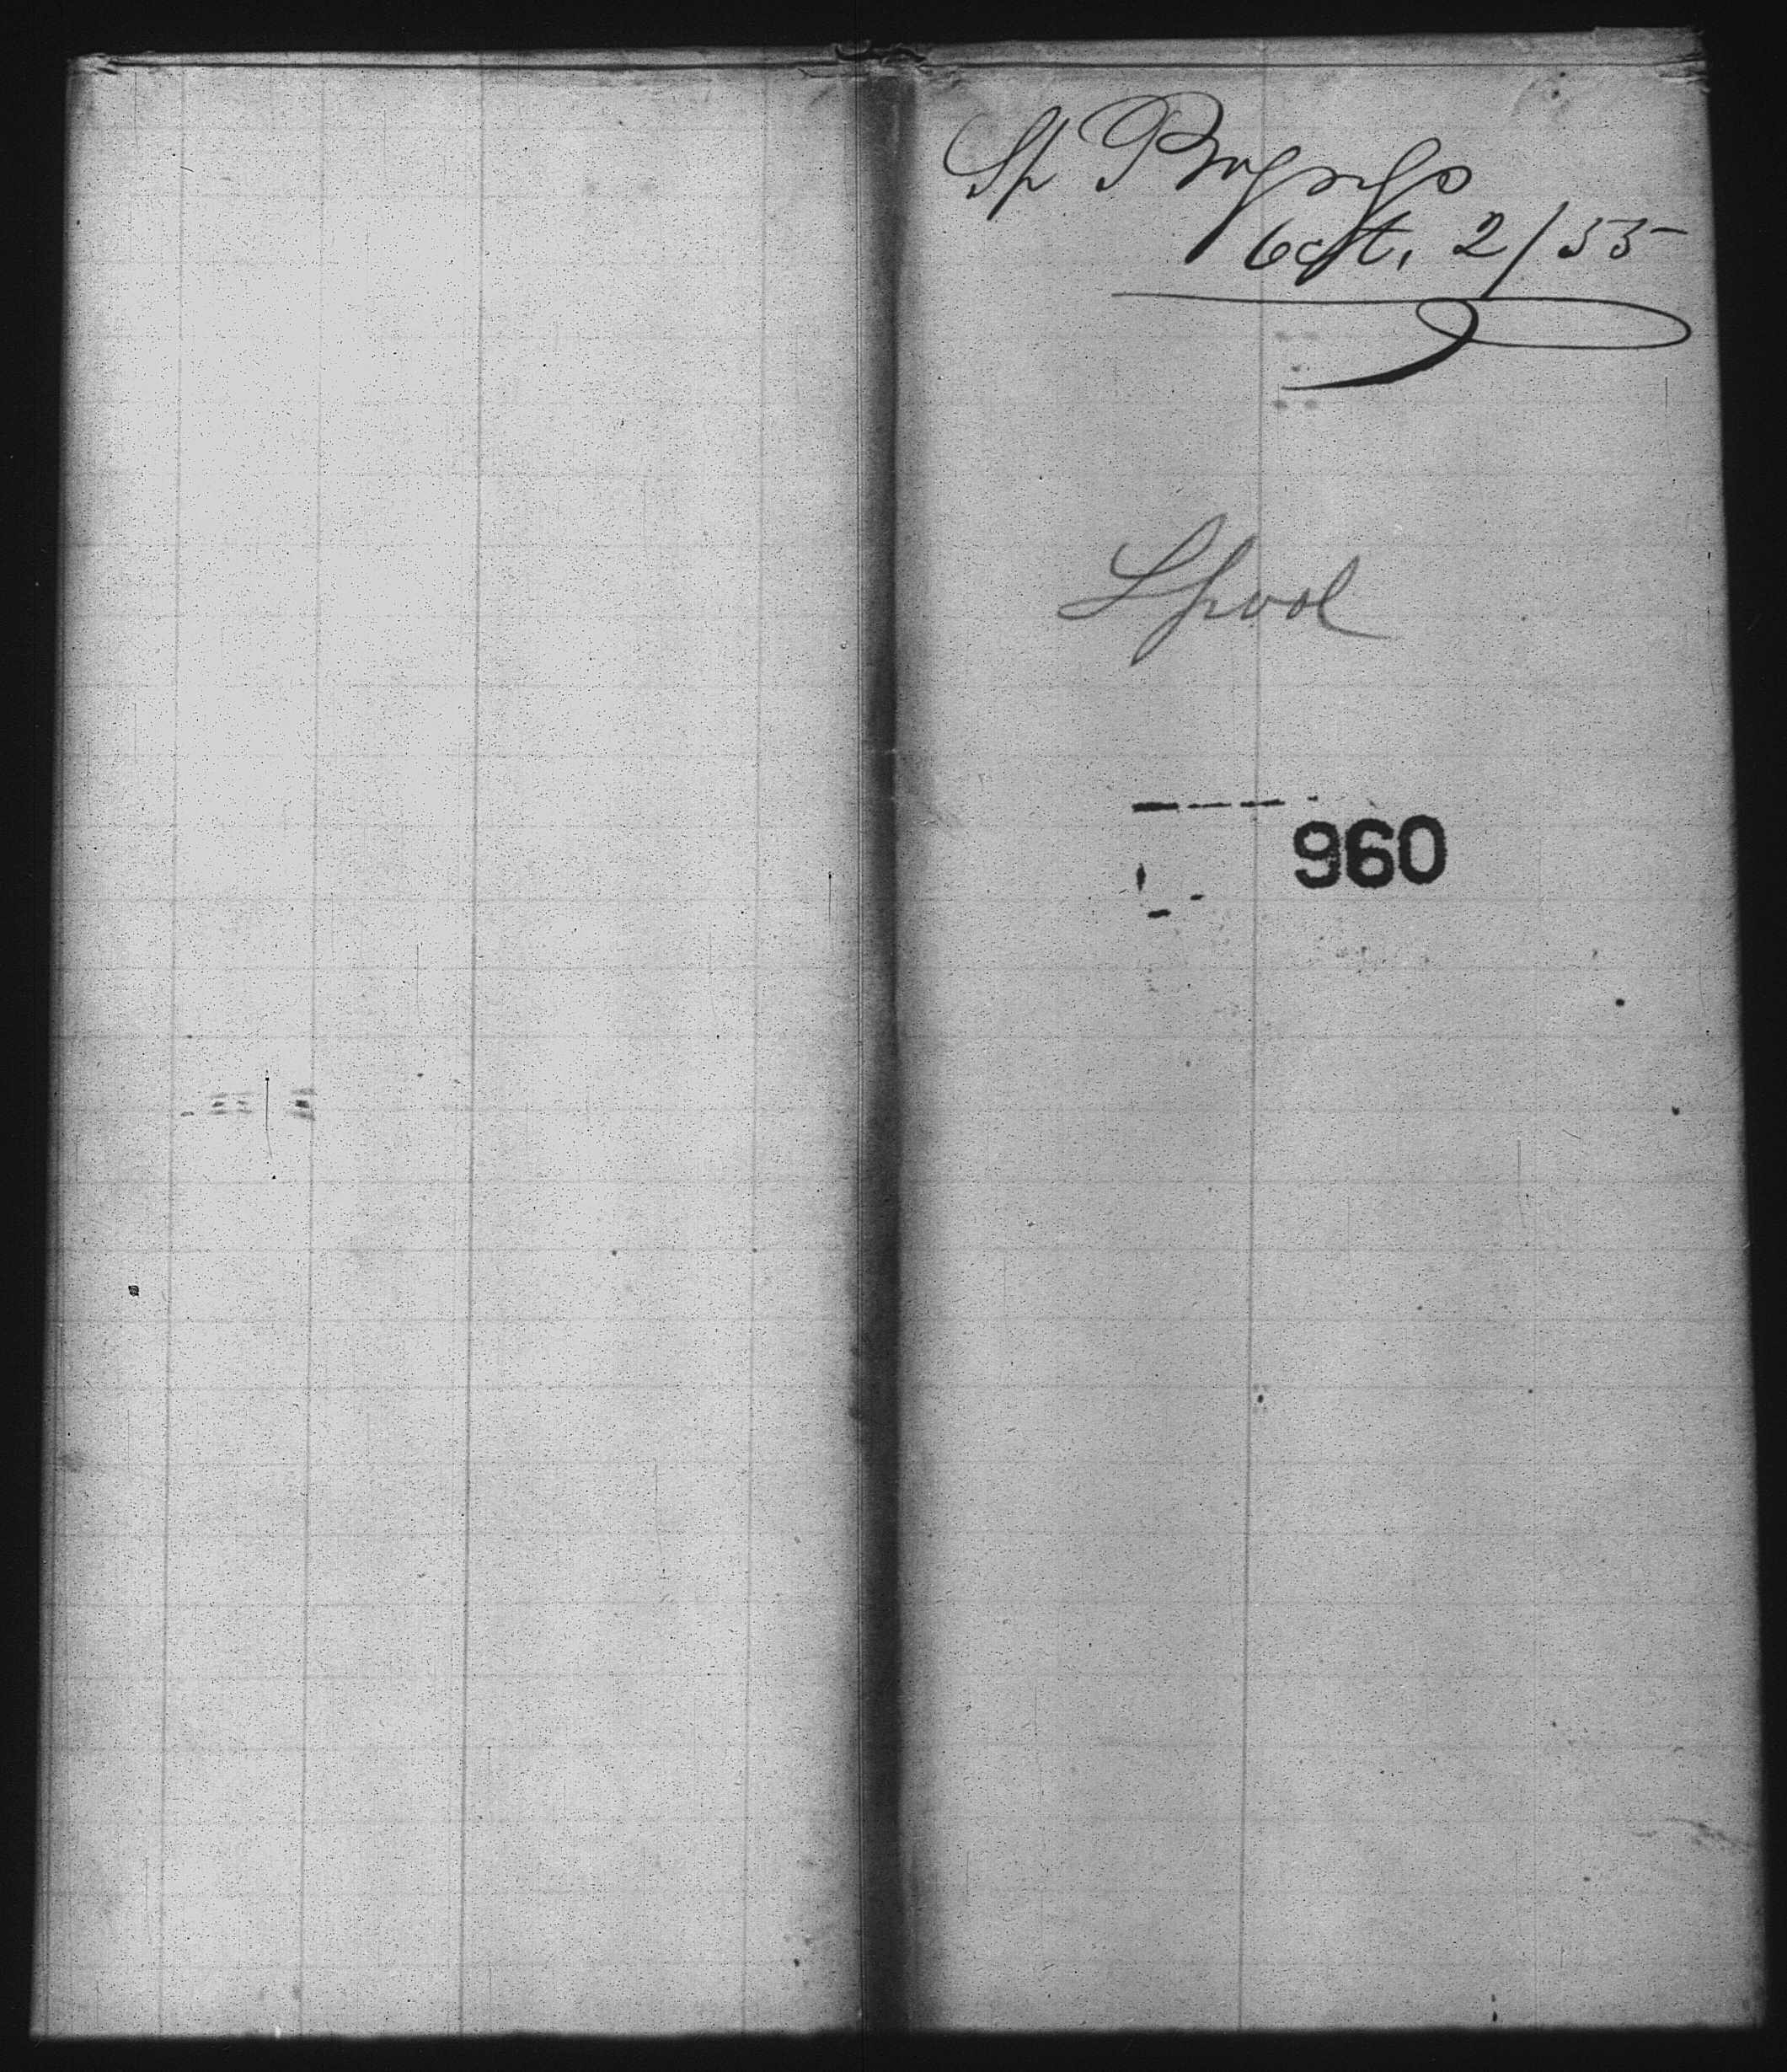 Sp
Oct. 2/55
Lpool
960